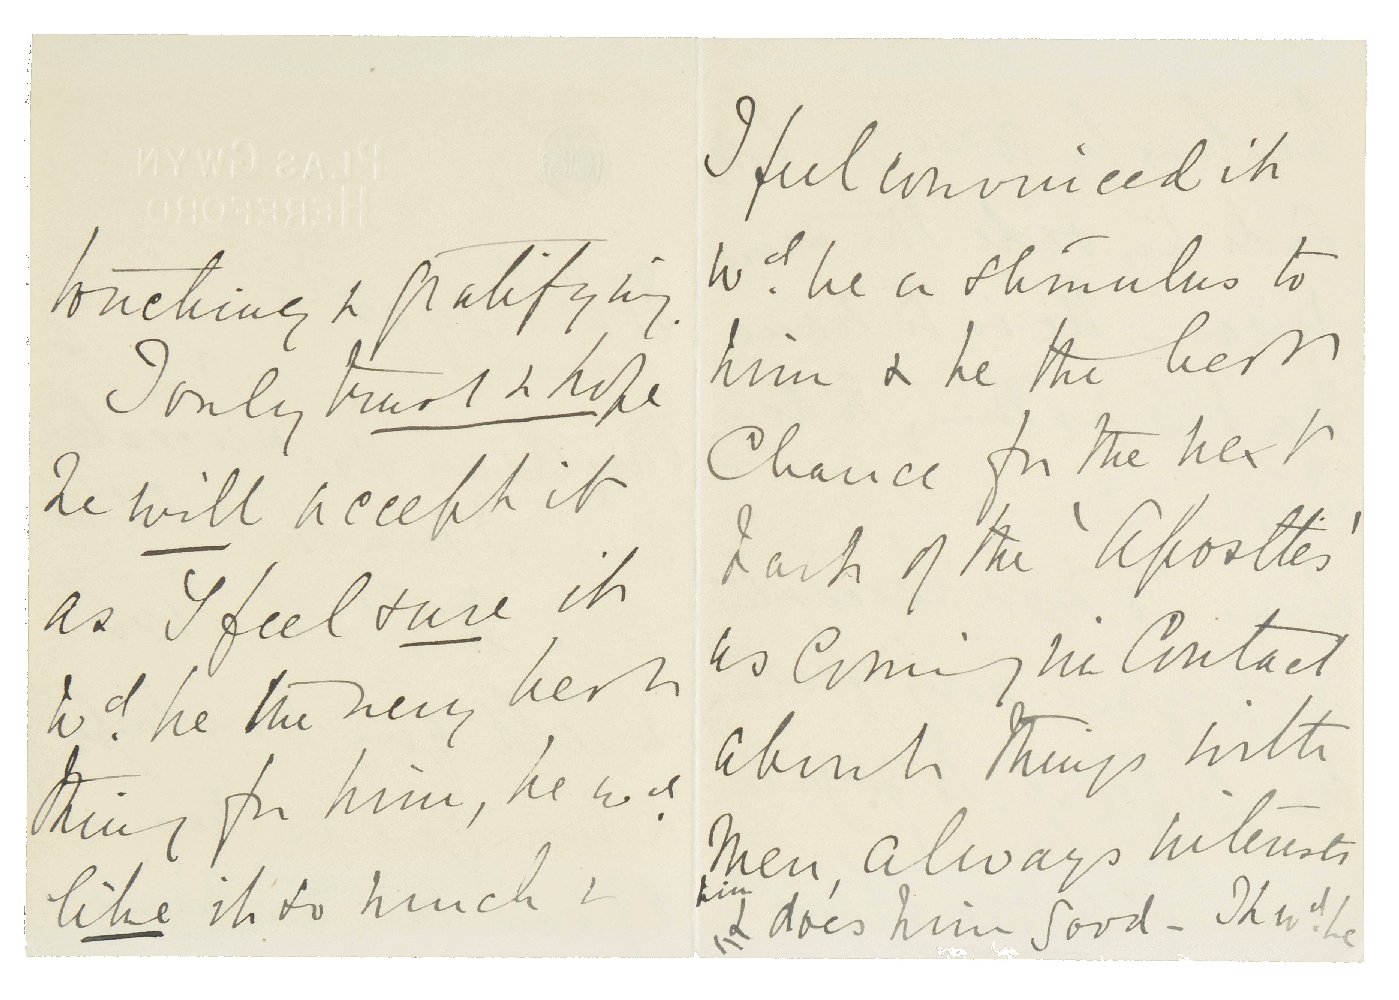 PLAS GWYN,
HEREFORD.
touching & gratifying.
I only trust & hope
he will accept it
as I feel sure it
wd. be the very best
thing for him, he wd.
like it so much &
I feel convinced it
wd. be a stimulus to
him & be the best
Chance for the next
part of the 'Apostles'
as coming in Contact
about things with
men, always interests
him
& does him good - It wd. be